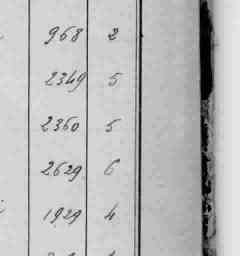 968 2
2349 5
2360 5
2629 6
1929 4